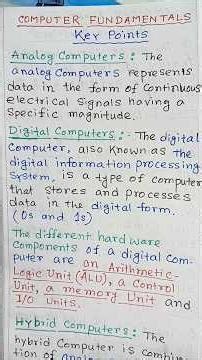 COMPUTER FUNDAMENTALS
Key Points
Analog Computers : The
analog Computers represents
data in the form of Continuous
electrical Signals having a
Specific magnitude.
Digital Computers :- The digital
Computer, also Known as The
digital information processing
System, is a type of computer
that Stores and processes
data in the digital form.
(0s and 1s)
The different hardware
Components of a digital Com-
puter are an Arithmetic-
Logic Unit (ALU), a Control
Unit, a memory Unit and
I/O Units.
Hybrid Computers : The
hybrid Computer is Combina
tion of analog